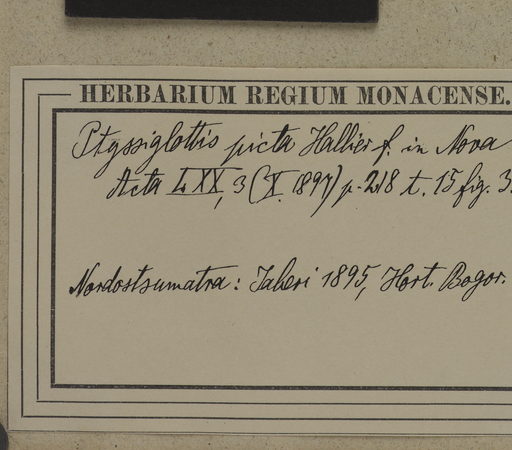 HERBARIUM REGIUM MONACENSE.
Ptyssiglottis picta Hallier f. in Nova
Acta LXX, 3 (X. 1897) p. 218 t. 15 fig. 3.
Nordostsumatra: Jaheri 1895, Hort. Bogor.